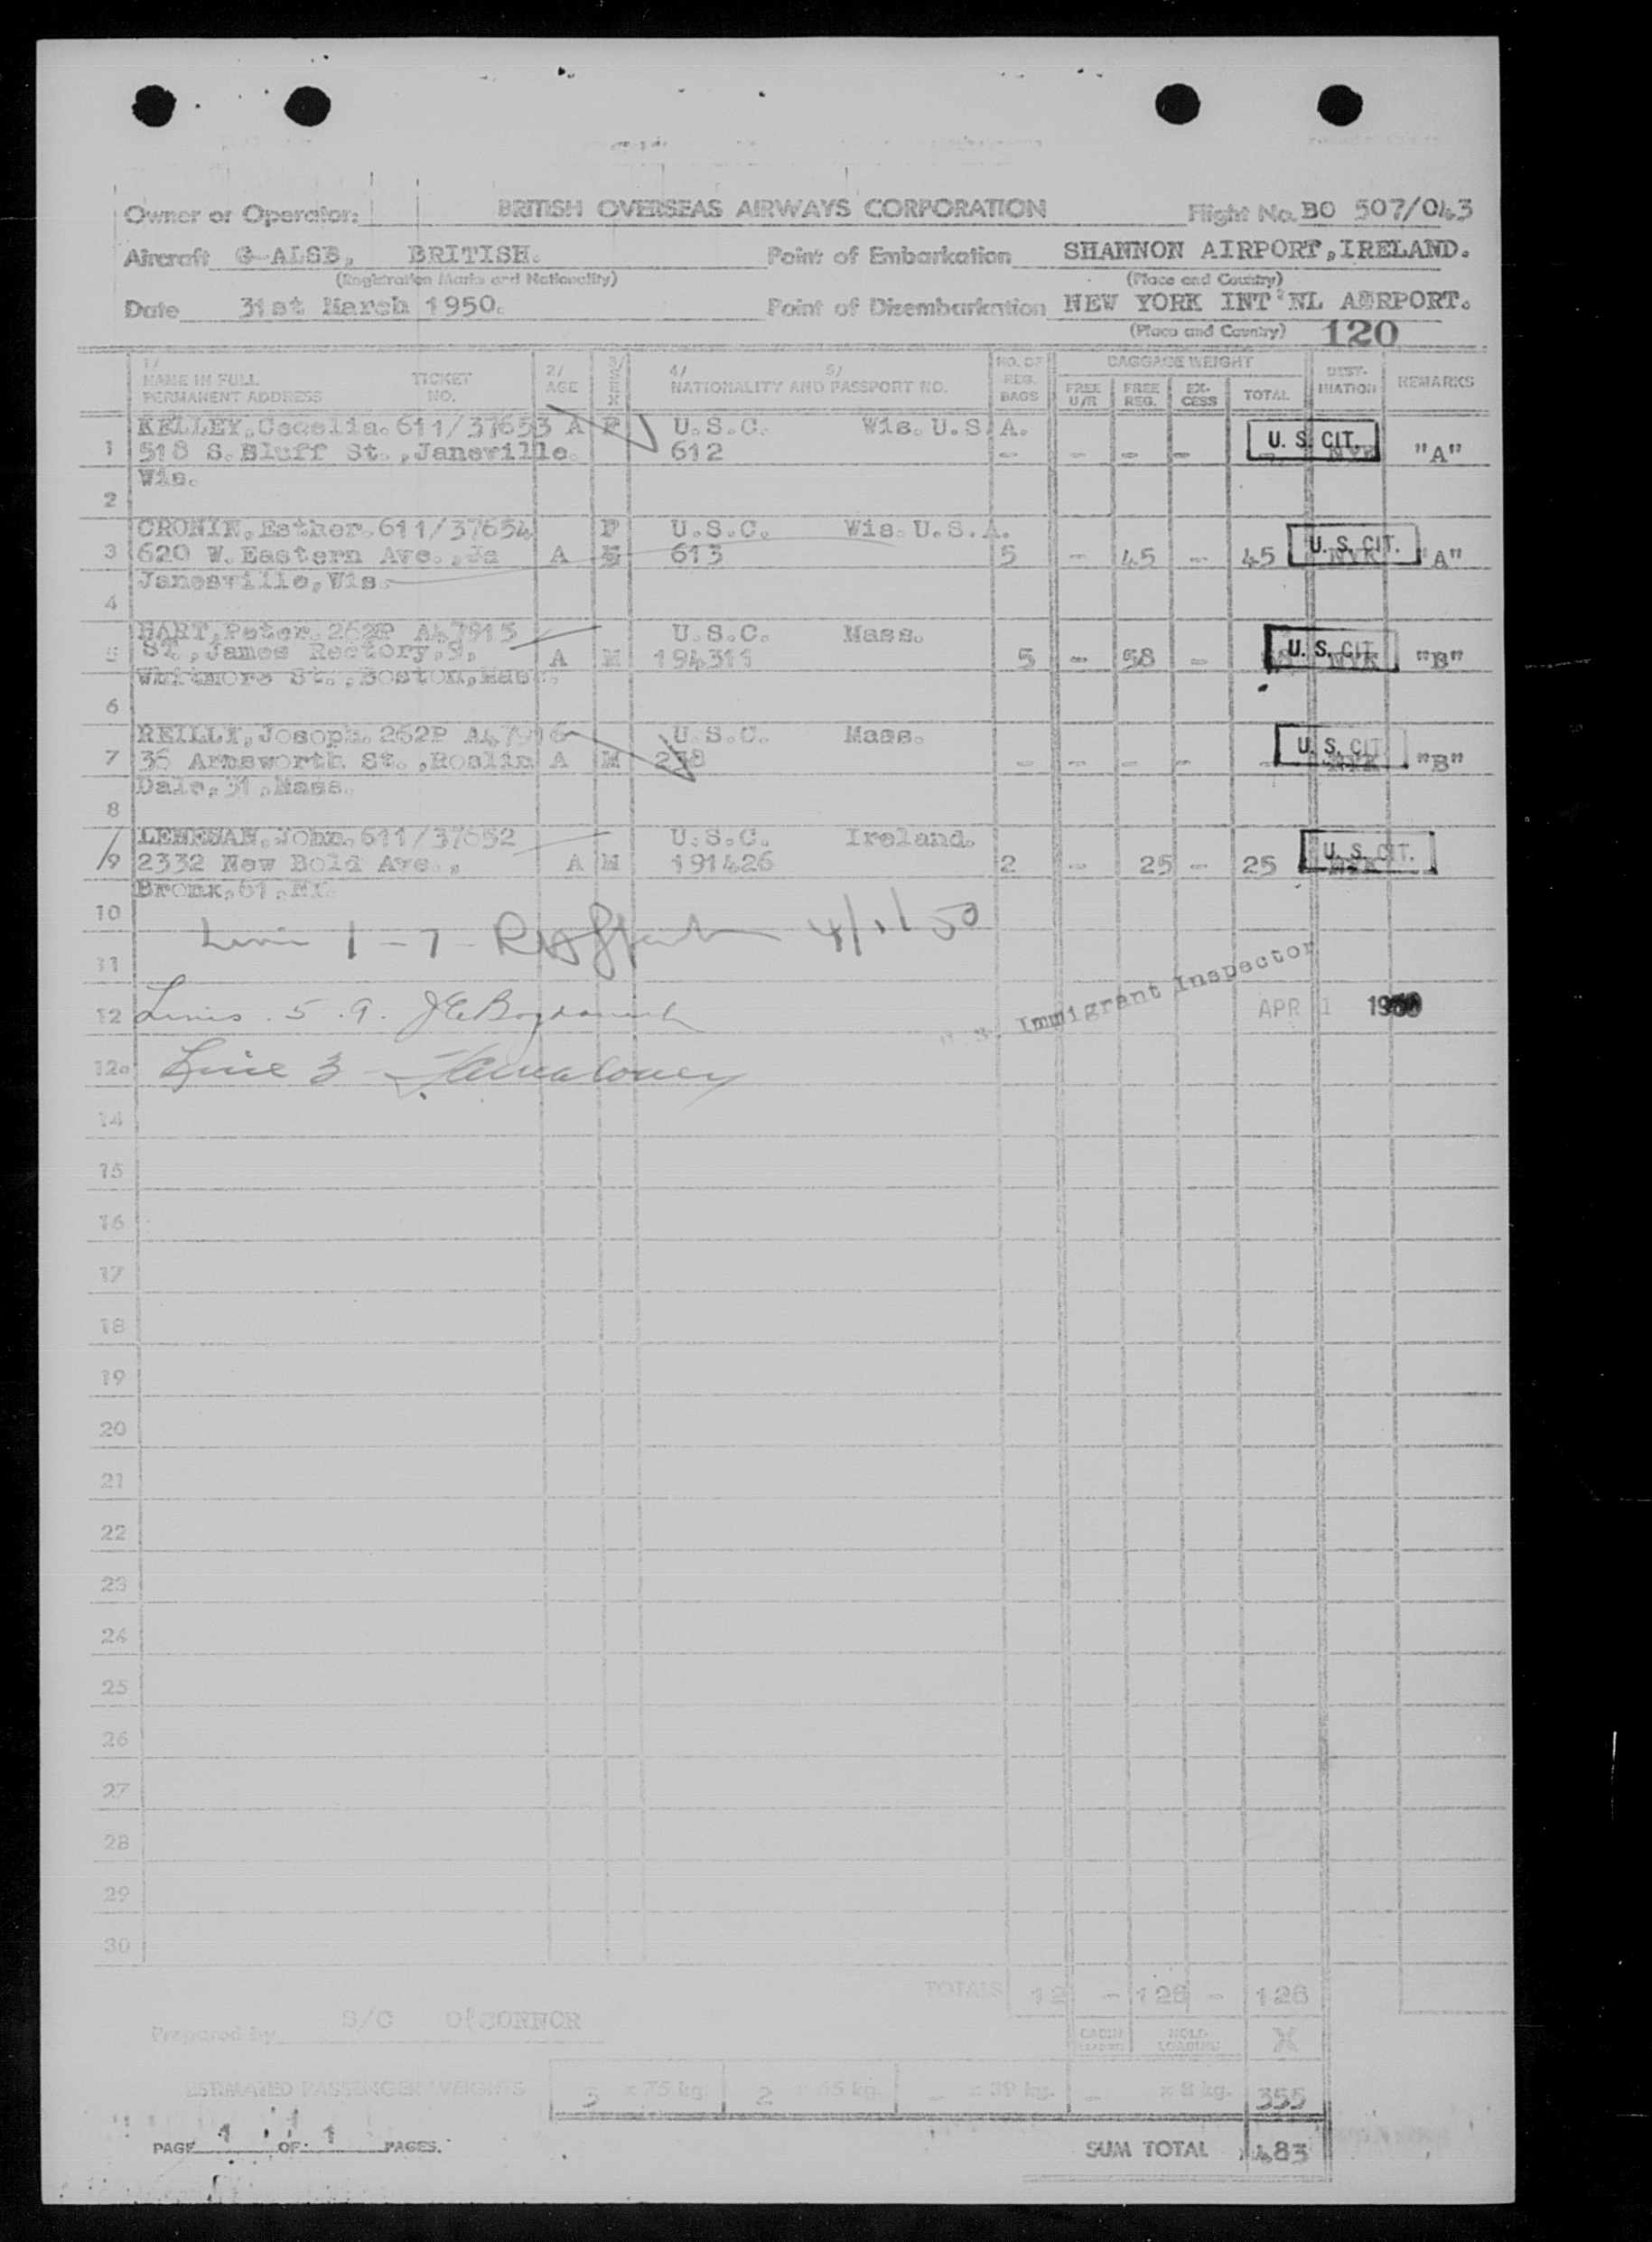 Owner or Operator: BRITISH OVERSEAS AIRWAYS CORPORATION Flight No. BO 507/043
Aircraft G-ALSB, BRITISH. Point of Embarkation SHANNON AIRPORT, IRELAND.
(Registration Marks and Nationality) (Place and Country)
Date 31st March 1950. Point of Disembarkation NEW YORK INT'NL AIRPORT.
(Place and Country) 120
1/ NAME IN FULL PERMANENT ADDRESS TICKET NO. 2/ AGE 3/ SEX 4/ 5/ NATIONALITY AND PASSPORT NO. NO. OF REG. BAGS BAGGAGE WEIGHT FREE U/R FREE REG. EX-CESS TOTAL DEST-INATION REMARKS
KELLEY, Cecelia. 611/37653 A F U.S.C. Wis. U.S.A.
1 518 S. Bluff St., Janeville. 612 - - - - - U. S. CIT. NYK "A"
Wis.
2
CRONIN, Esther. 611/37654 F U.S.C. Wis. U.S.A.
3 620 W. Eastern Ave., Ja A 613 5 - 45 - 45 U. S. CIT. NYK "A"
Janesville, Wis.
4
HART, Peter. 262P A47915 U.S.C. Mass.
5 ST, James Rectory, 9, A M 194311 5 - 58 - 58 U. S. CIT. NYK "B"
Whitmore St., Boston, Mass.
6
REILLY, Joseph. 262P A47916 U.S.C. Mass.
7 36 Armsworth St., Roslin A M 218 - - - - - U. S. CIT. NYK "B"
Dale, 31, Mass.
8
LENEHAN, John. 611/37652 U.S.C. Ireland.
9 2332 New Bold Ave., A M 191426 2 - 25 - 25 U. S. CIT. NYK
Bronx, 61, NY.
10
Line 1 - 7 4/1/50
11
Immigrant Inspector
12 Lines 5 . 9. APR 1 1950
12a Line 3
14
15
16
17
18
19
20
21
22
23
24
25
26
27
28
29
30
TOTALS 12 - 128 - 128
Prepared by S/C O'CONNOR
CABIN LOADING HOLD LOADING
ESTIMATED PASSENGER WEIGHTS 3 x 75 kg. 2 x 65 kg. - x 39 kg. - x 8 kg. 355
PAGE 1 OF 1 PAGES. SUM TOTAL 483